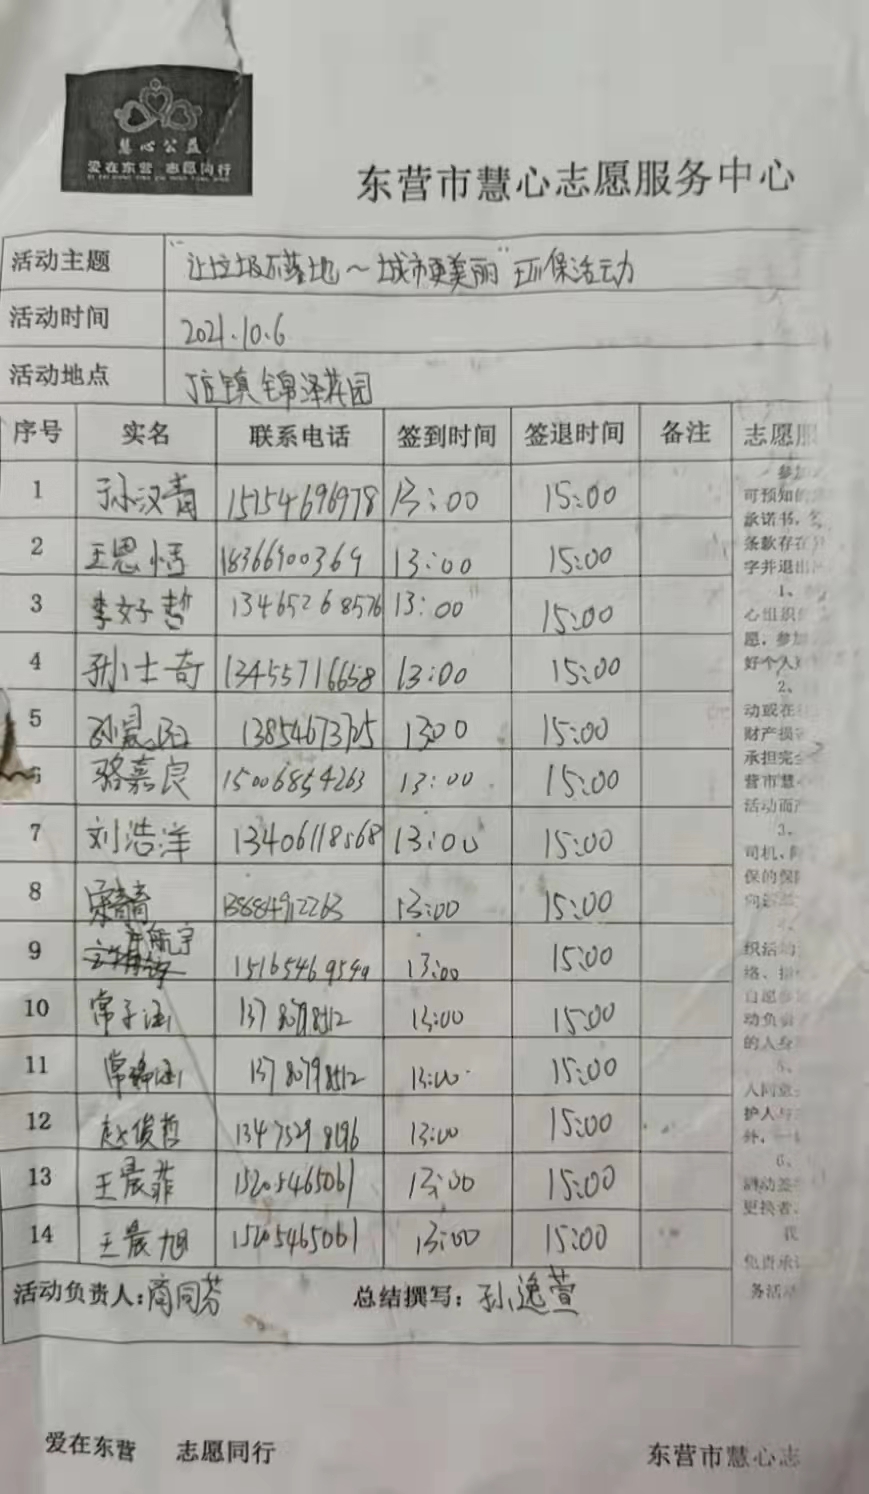 慧心公益
爱在东营 志愿同行
东营市慧心志愿服务中心
活动主题 "让垃圾不落地~城市更美丽"环保活动
活动时间 2021.10.6
活动地点 丁庄镇锦泽花园
序号 实名 联系电话 签到时间 签退时间 备注 志愿服
1 孙汉青 15754696978 13:00 15:00
2 王恩恬 18366900369 13:00 15:00
3 李好哲 13465268576 13:00 15:00
4 孙士奇 13455716658 13:00 15:00
5 13:00 15:00
6 骆嘉良 15006854263 13:00 15:00
7 刘浩洋 13406118568 13:00 15:00
8 13884912263 13:00 15:00
9 航宇 13:00 15:00
10 常子涵 13780798512 13:00 15:00
11 常 涵 13780798512 13:00 15:00
12 赵俊哲 13475298196 13:00 15:00
13 王晨菲 15205465061 13:00 15:00
14 王晨旭 15205465061 13:00 15:00
参加
可预知的
承诺书,
条款存在
字并退出
1、
心组织
愿,参加
好个人
2、
动或在
财产损
承担完全
营市慧
活动而产
3、
司机、
保的保
织活动
络、
自愿参
动负责
的人身
人同意
护人与
外,一
6、
更换者,
我
负责承
务活动
活动负责人:商同芬 总结撰写:孙逸萱
爱在东营 志愿同行 东营市慧心志